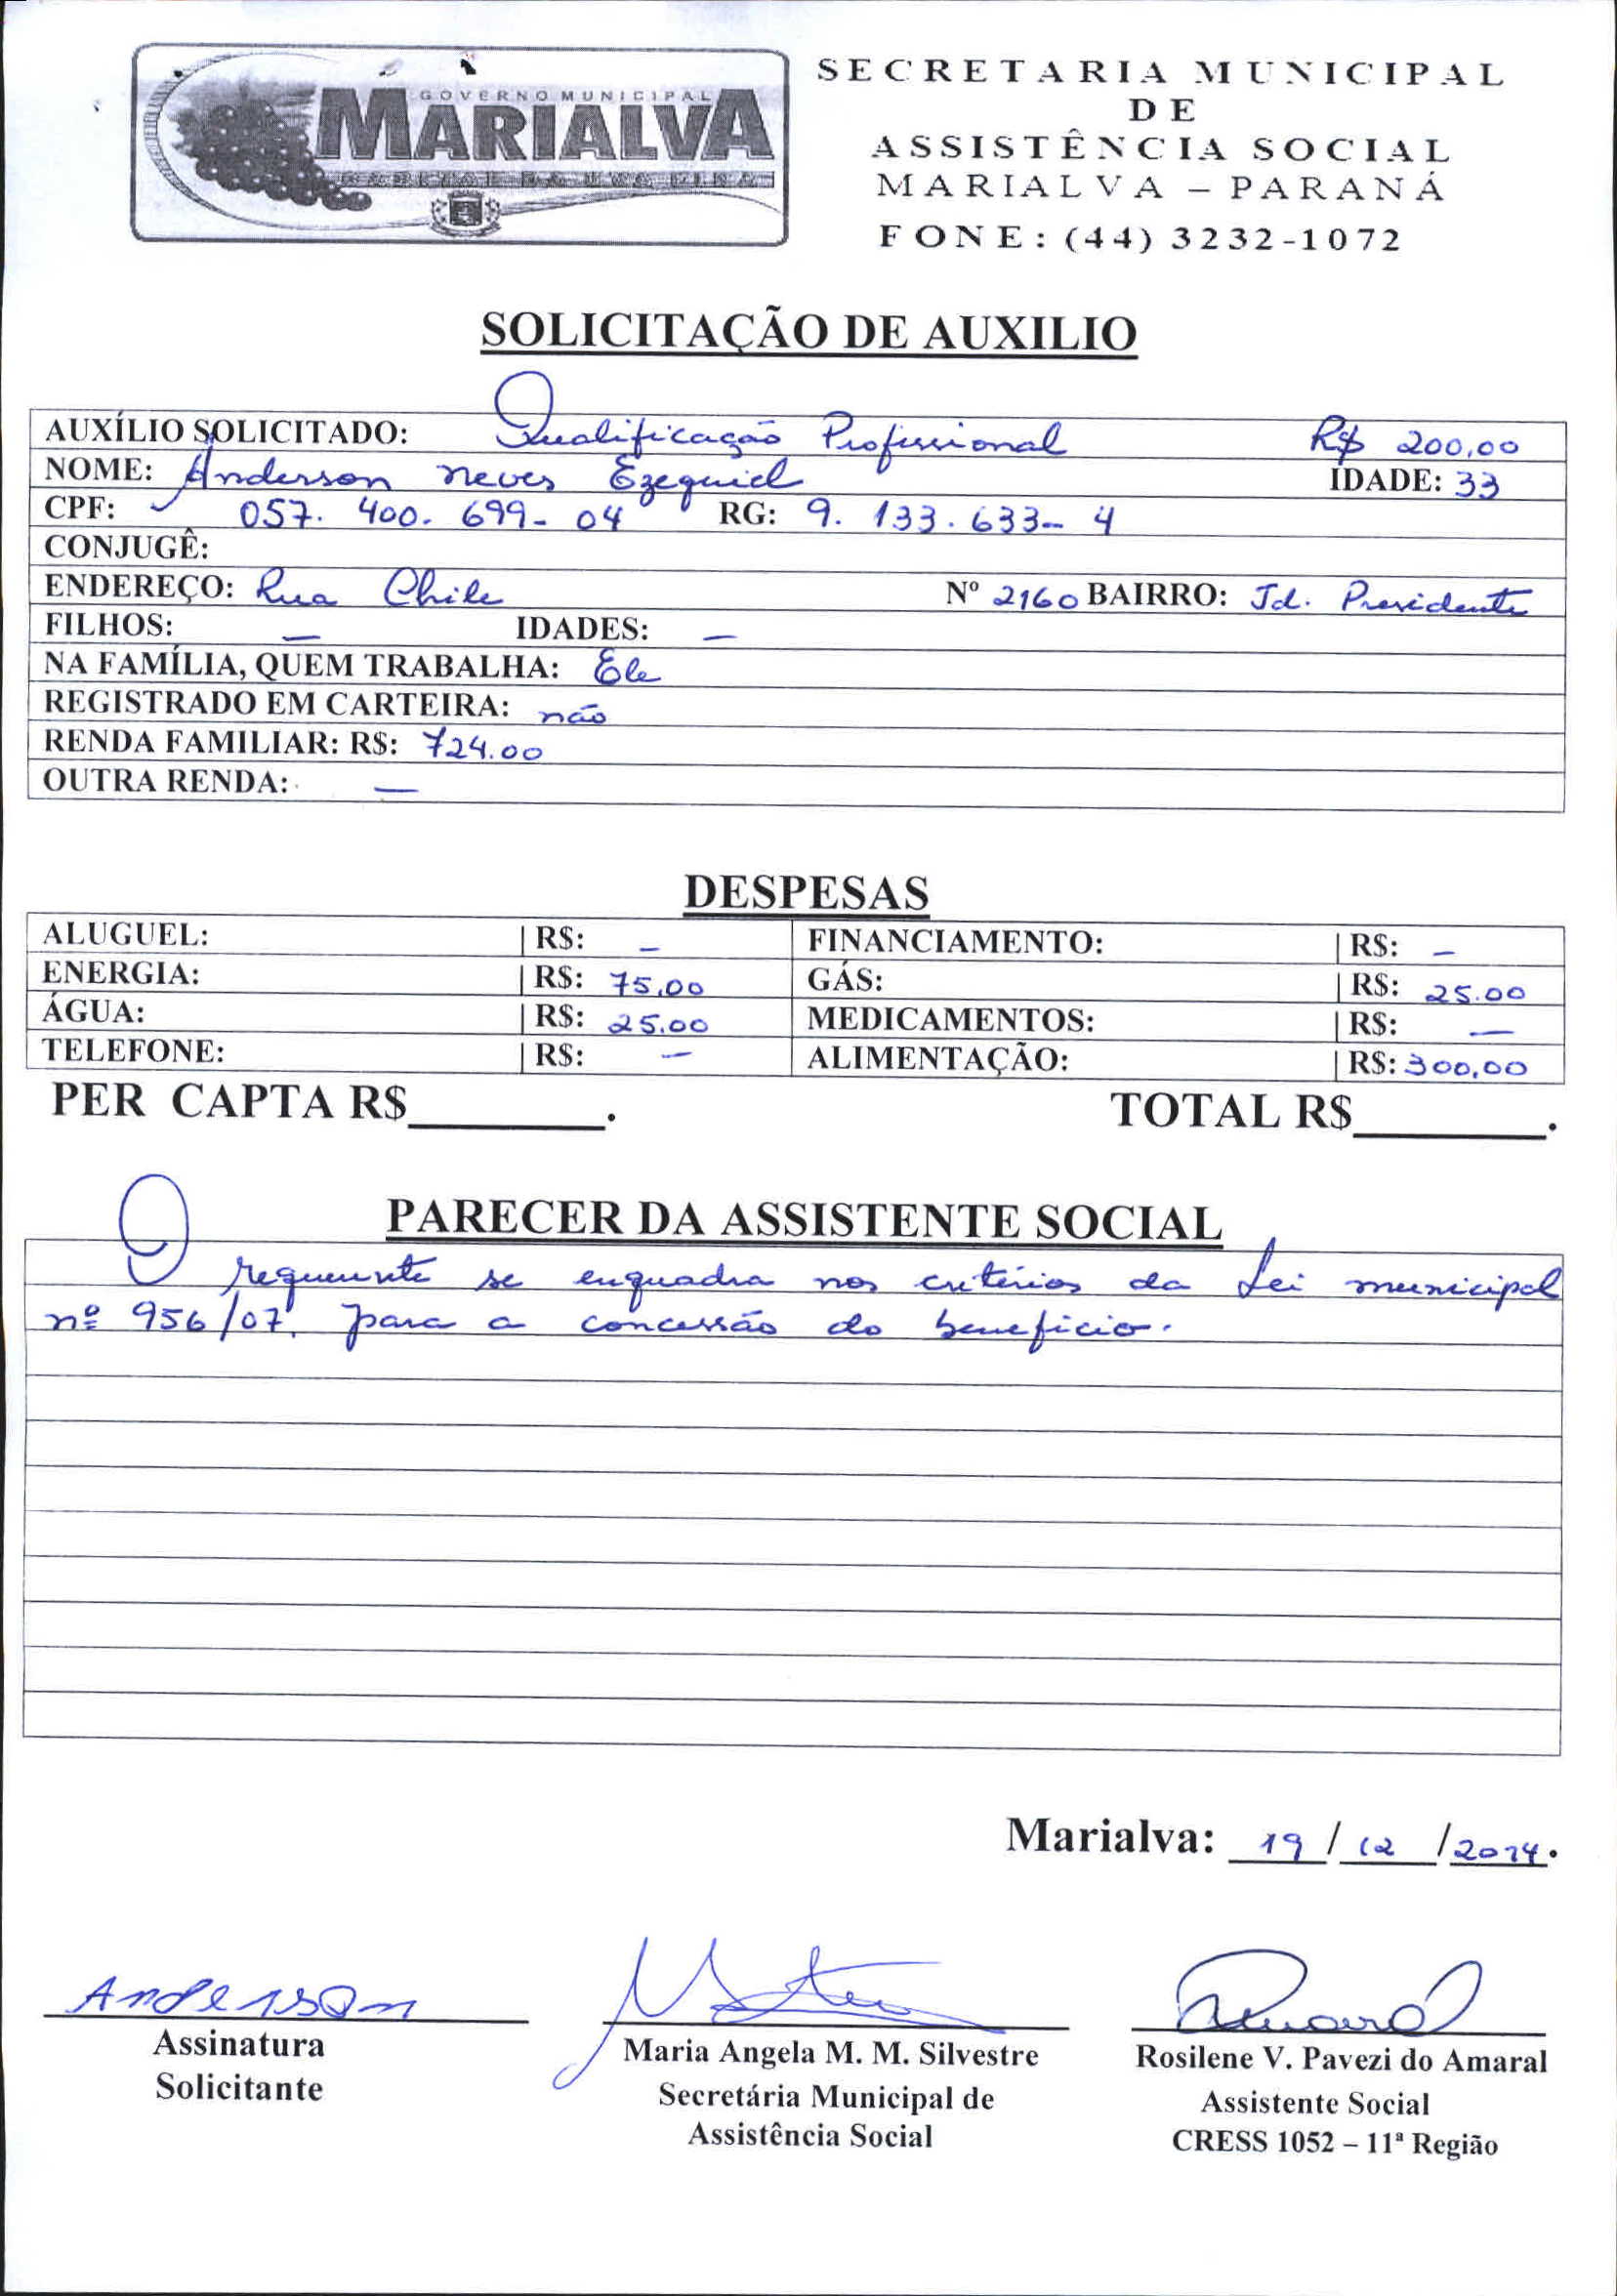 GOVERNO MUNICIPAL
MARIALVA
SECRETARIA MUNICIPAL
DE
ASSISTÊNCIA SOCIAL
MARIALVA – PARANÁ
FONE: (44) 3232-1072
SOLICITAÇÃO DE AUXILIO
AUXÍLIO SOLICITADO: Qualificação Profissional R$ 200,00
NOME: Anderson Neves Ezequiel IDADE: 33
CPF: 057.400.699-04 RG: 9.133.633-4
CONJUGÊ:
ENDEREÇO: Rua Chile Nº 2160 BAIRRO: Jd. Presidente
FILHOS: — IDADES: —
NA FAMÍLIA, QUEM TRABALHA: Ele
REGISTRADO EM CARTEIRA: não
RENDA FAMILIAR: R$: 724.00
OUTRA RENDA: —
DESPESAS
ALUGUEL: | R$: – FINANCIAMENTO: | R$: –
ENERGIA: | R$: 75,00 GÁS: | R$: 25.00
ÁGUA: | R$: 25,00 MEDICAMENTOS: | R$: —
TELEFONE: | R$: – ALIMENTAÇÃO: | R$: 300,00
PER CAPTA R$________. TOTAL R$________.
PARECER DA ASSISTENTE SOCIAL
O requerente se enquadra nos critérios da Lei municipal
nº 956/07, para a concessão do beneficio.
Marialva: 19 / 12 / 2014.
Anderson
Assinatura
Solicitante
Maria Angela M. M. Silvestre
Secretária Municipal de
Assistência Social
Rosilene V. Pavezi do Amaral
Assistente Social
CRESS 1052 – 11ª Região